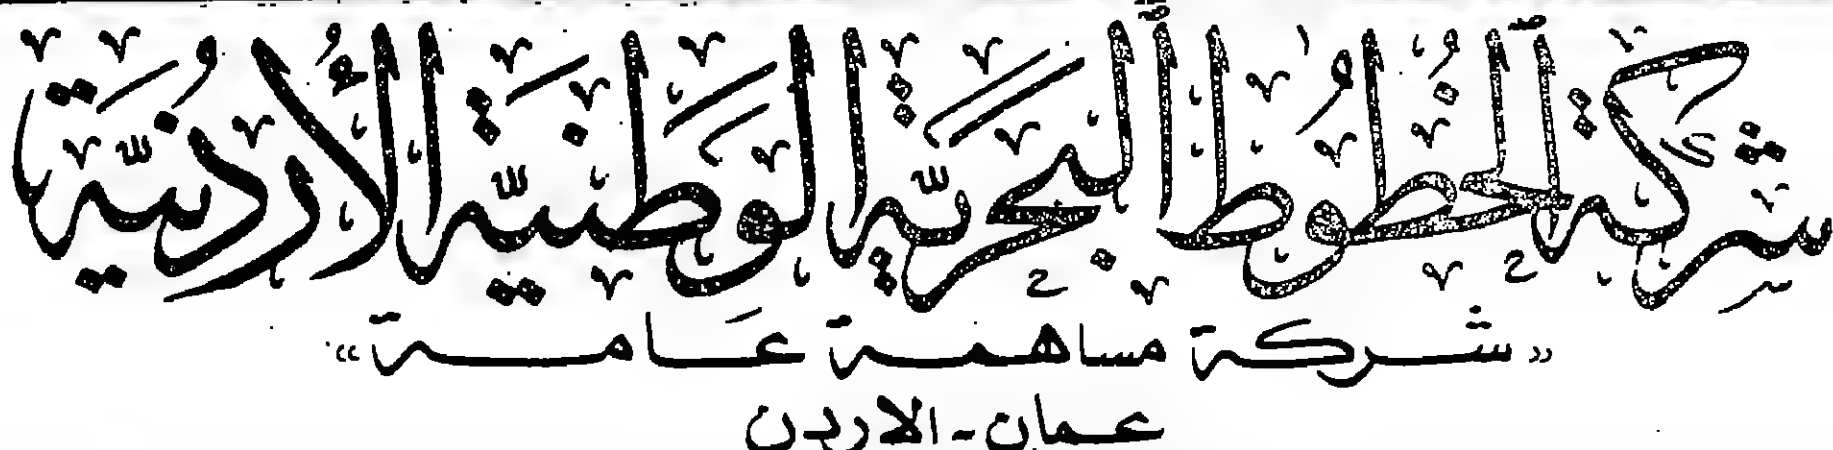 شركة الخطوط البحرية الوطنية الأردنية
«شركة مساهمة عامة»
عمان - الاردن